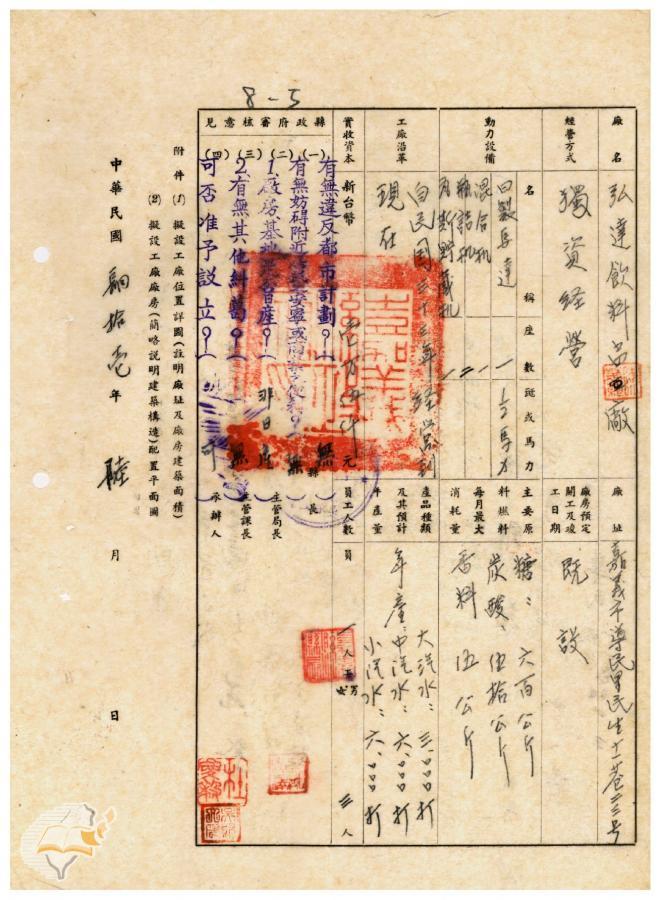 8-5
廠名 弘達飲料品工廠
廠址 嘉義市導民里民生十一巷三三号
經營方式 獨資經營
廠房預定開工及竣工日期 既設
動力設備 名稱 座數 匹或馬力
日製馬達 一 1/2馬力
混合机 一
瓶詰机 二
瓦斯貯蔵机 一
主要原料燃料每月最大消耗量
糖：六百公斤
炭酸、伍拾公斤
香料 伍公斤
工廠沿革 自民國三十三年經營到
現在
產品種類及其預計年產量
年產：大汽水：三.000打
中汽水：六.000打
小汽水：六.000打
實收資本 新台幣 壹万伍仟元
員工人數 員 一人 工 男 女 三人
縣政府審核意見
(一)有無違反都市計劃？(無)
(二)有無妨碍附近 安寧或 ？(無)
1.廠房基地是否日產？(非日產)
(三)2.有無其他糾葛？(無)
(四)可否准予設立？(可)
縣長
主管局長
主管課長
承辦人
附件(1)擬設工廠位置詳圖(註明廠址及廠房建築面積)
(2)擬設工廠廠房(簡略說明建築構造)配置平面圖
中華民國 肆拾壱年 陸月 日